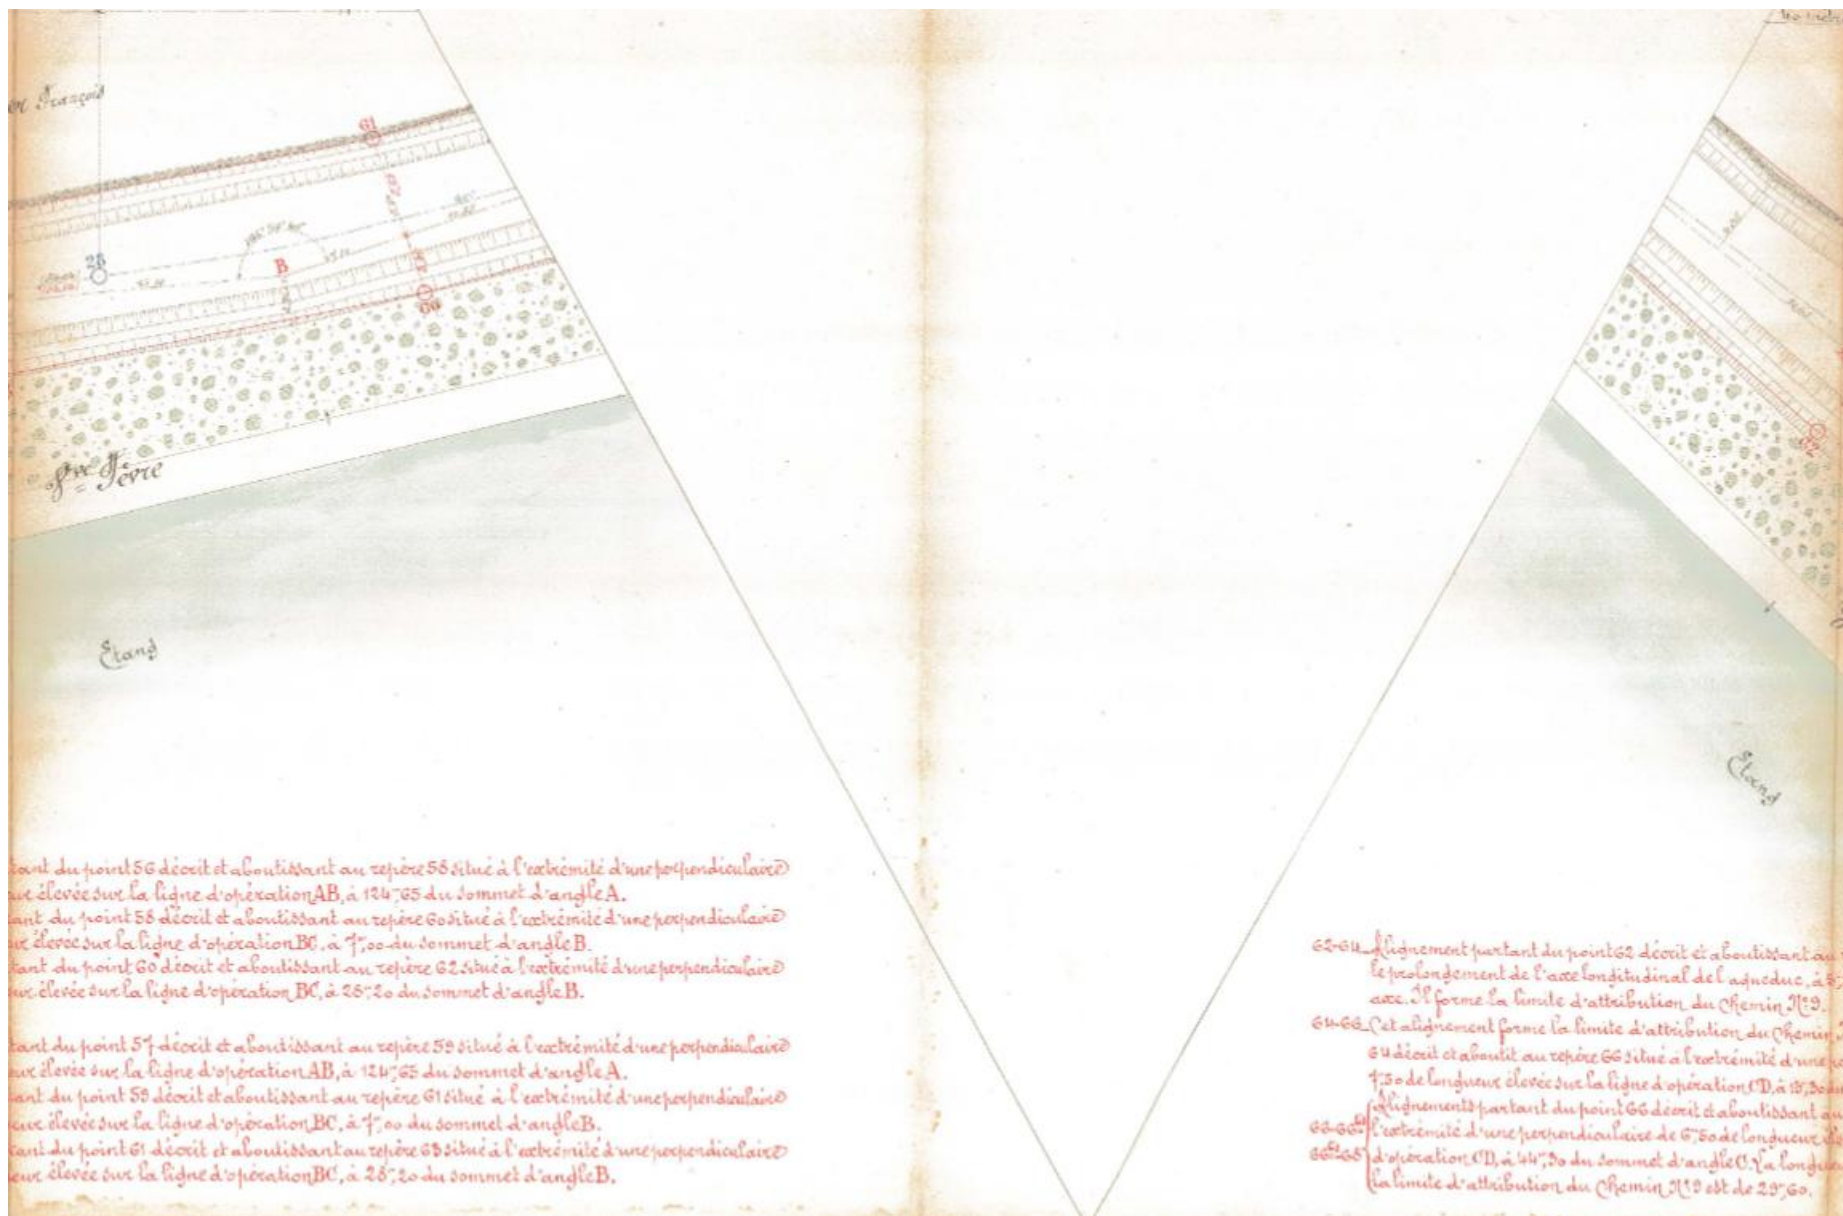 François
61
28
B
60
Vve Fèvre
Etang
62
Etang
tant du point 56 décrit et aboutissant au repère 58 situé à l'extrémité d'une perpendiculaire
eur élevée sur la ligne d'opération AB, à 124m,65 du sommet d'angle A.
tant du point 58 décrit et aboutissant au repère 60 situé à l'extrémité d'une perpendiculaire
eur élevée sur la ligne d'opération BC, à 7m,00 du sommet d'angle B.
tant du point 60 décrit et aboutissant au repère 62 situé à l'extrémité d'une perpendiculaire
eur élevée sur la ligne d'opération BC, à 28m,20 du sommet d'angle B.
tant du point 57 décrit et aboutissant au repère 59 situé à l'extrémité d'une perpendiculaire
eur élevée sur la ligne d'opération AB, à 124m,65 du sommet d'angle A.
tant du point 59 décrit et aboutissant au repère 61 situé à l'extrémité d'une perpendiculaire
eur élevée sur la ligne d'opération BC, à 7m,00 du sommet d'angle B.
tant du point 61 décrit et aboutissant au repère 63 situé à l'extrémité d'une perpendiculaire
eur élevée sur la ligne d'opération BC, à 28m,20 du sommet d'angle B.
62-64_Alignement partant du point 62 décrit et aboutissant au
le prolongement de l'axe longitudinal de l'aqueduc, à
axe. Il forme la limite d'attribution du Chemin No 9.
64-66_Cet alignement forme la limite d'attribution du Chemin
64 décrit et aboutit au repère 66 situé à l'extrémité d'une
7m,50 de longueur élevée sur la ligne d'opération CD, à 15m,30 du
Alignements partant du point 66 décrit et aboutissant
66-66bis l'extrémité d'une perpendiculaire de 6m,50 de longueur
66bis-68 d'opération CD, à 44m,90 du sommet d'angle C. La longueur
la limite d'attribution du Chemin No 9 est de 29m,60.